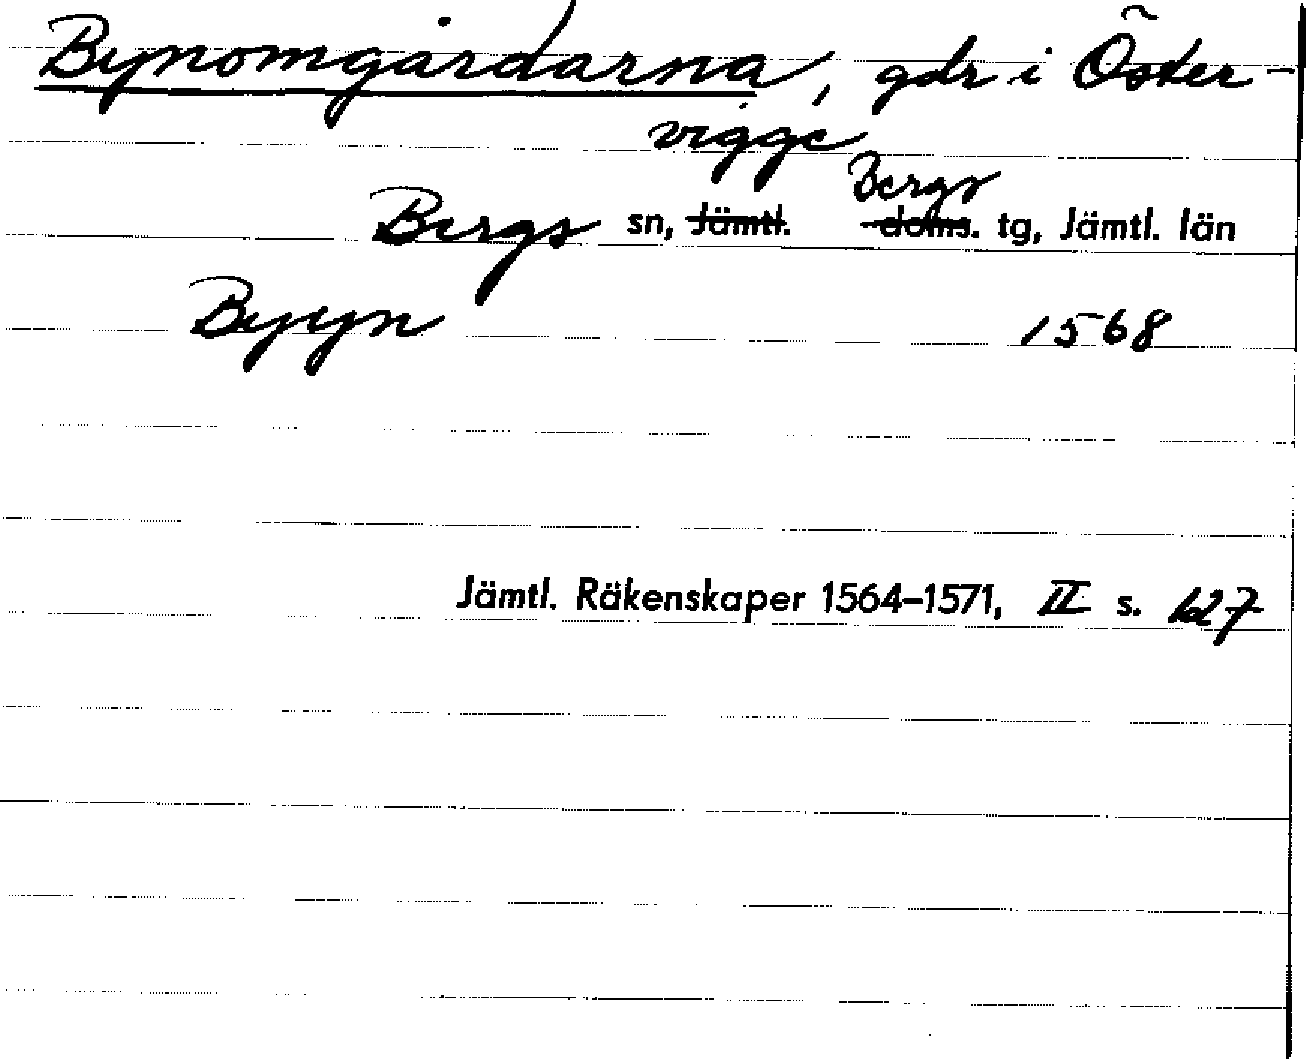 Bynomgårdarna, gdr i Öster-
vigge
Bergs
Bergs sn, Jämtl. doms. tg, Jämtl. län
Byyn 1568
Jämtl. Räkenskaper 1564–1571, II s. 127